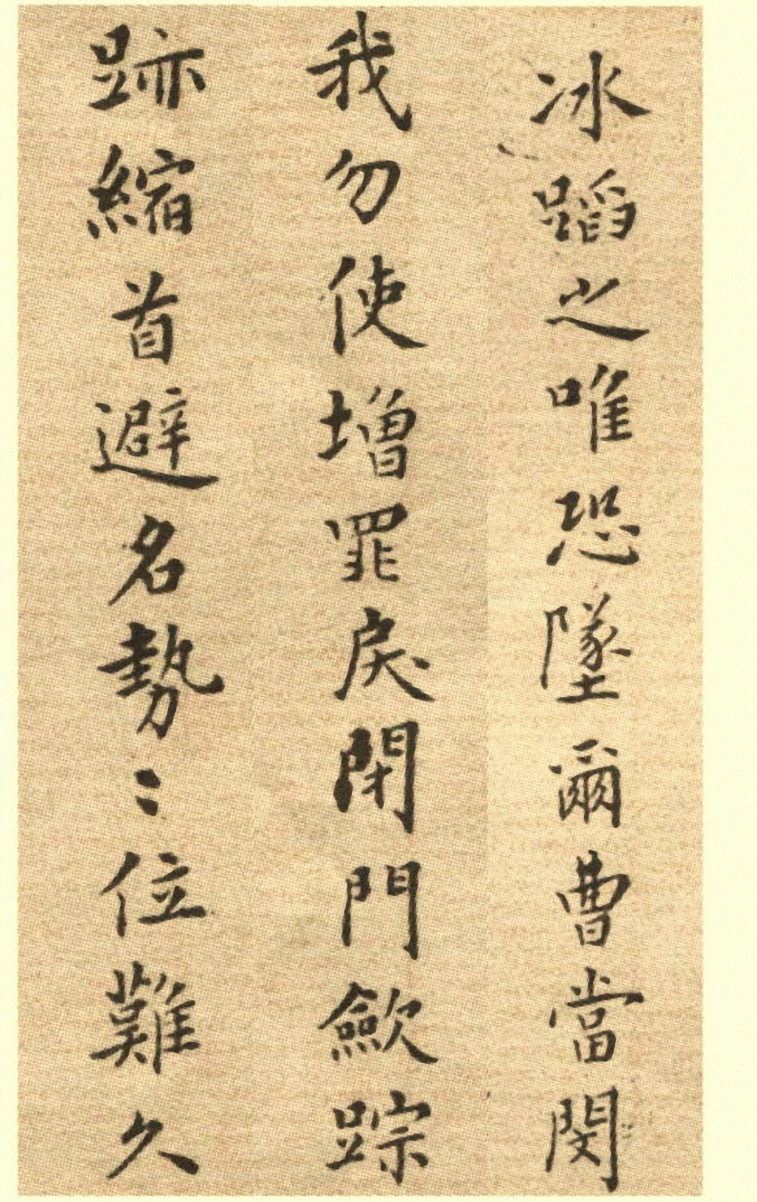 冰蹈之唯恐墜爾曹當閔
我勿使增罪戾閉門歛踪
跡縮首避名勢〻位難久